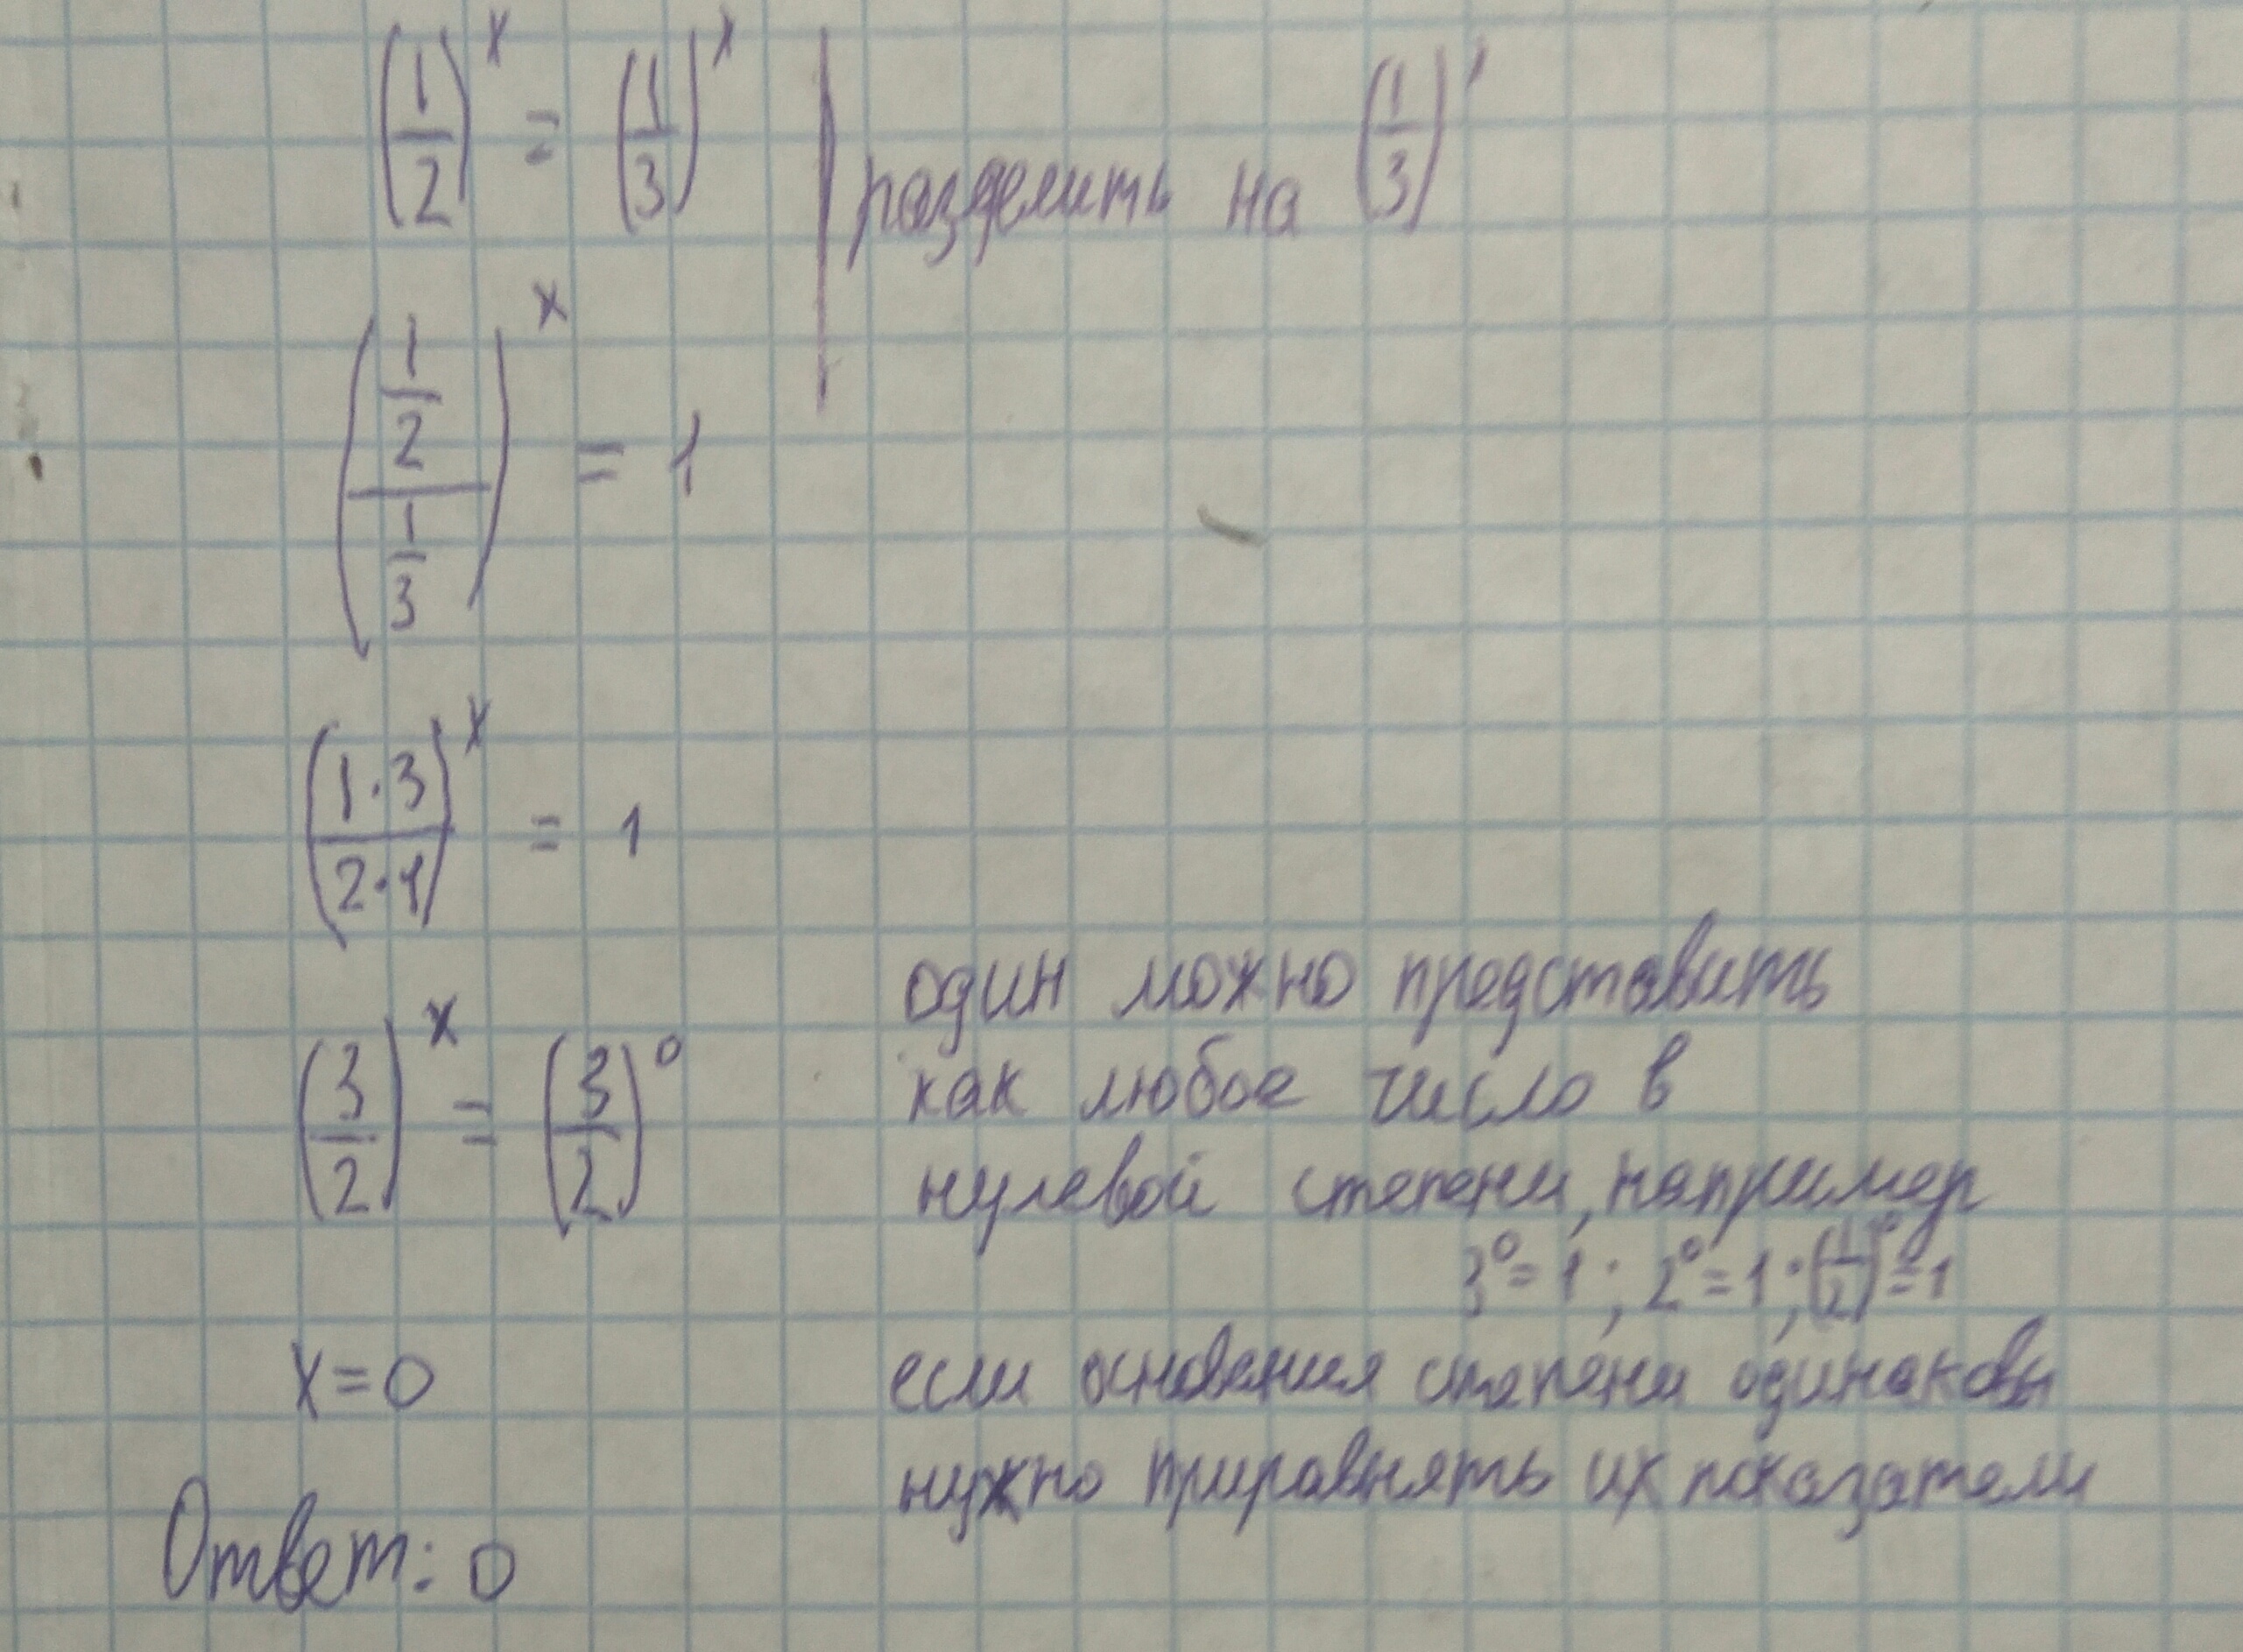 (1/2)^x = (1/3)^x | разделить на (1/3)^x
((1/2)/(1/3))^x = 1
((1·3)/(2·1))^x = 1
(3/2)^x = (3/2)^0
один можно представить
как любое число в
нулевой степени, например
3^0=1; 2^0=1; (1/2)^0=1
x=0
если основания степени одинаковы
нужно приравнять их показатели
Ответ: 0